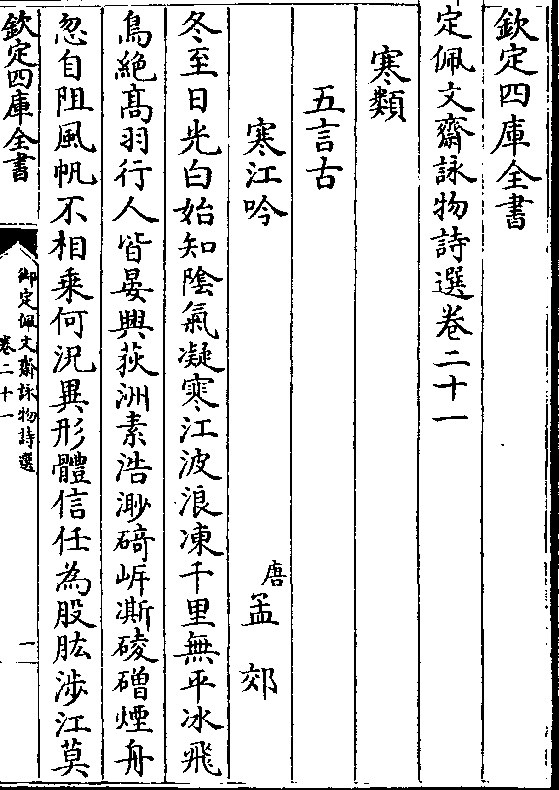 欽定四庫全書
定佩文齋詠物詩選卷二十一
寒類
五言古
寒江吟
唐孟郊
冬至日光白始知隂氣凝寒江波浪凍千里無平冰飛
鳥絶髙羽行人皆晏興荻洲素浩渺碕岸凘䃈磳煙舟
忽自阻風帆不相乘何況異形體信任為股肱涉江莫
欽定四庫全書
御定佩文齋詠物詩選
卷二十一
一